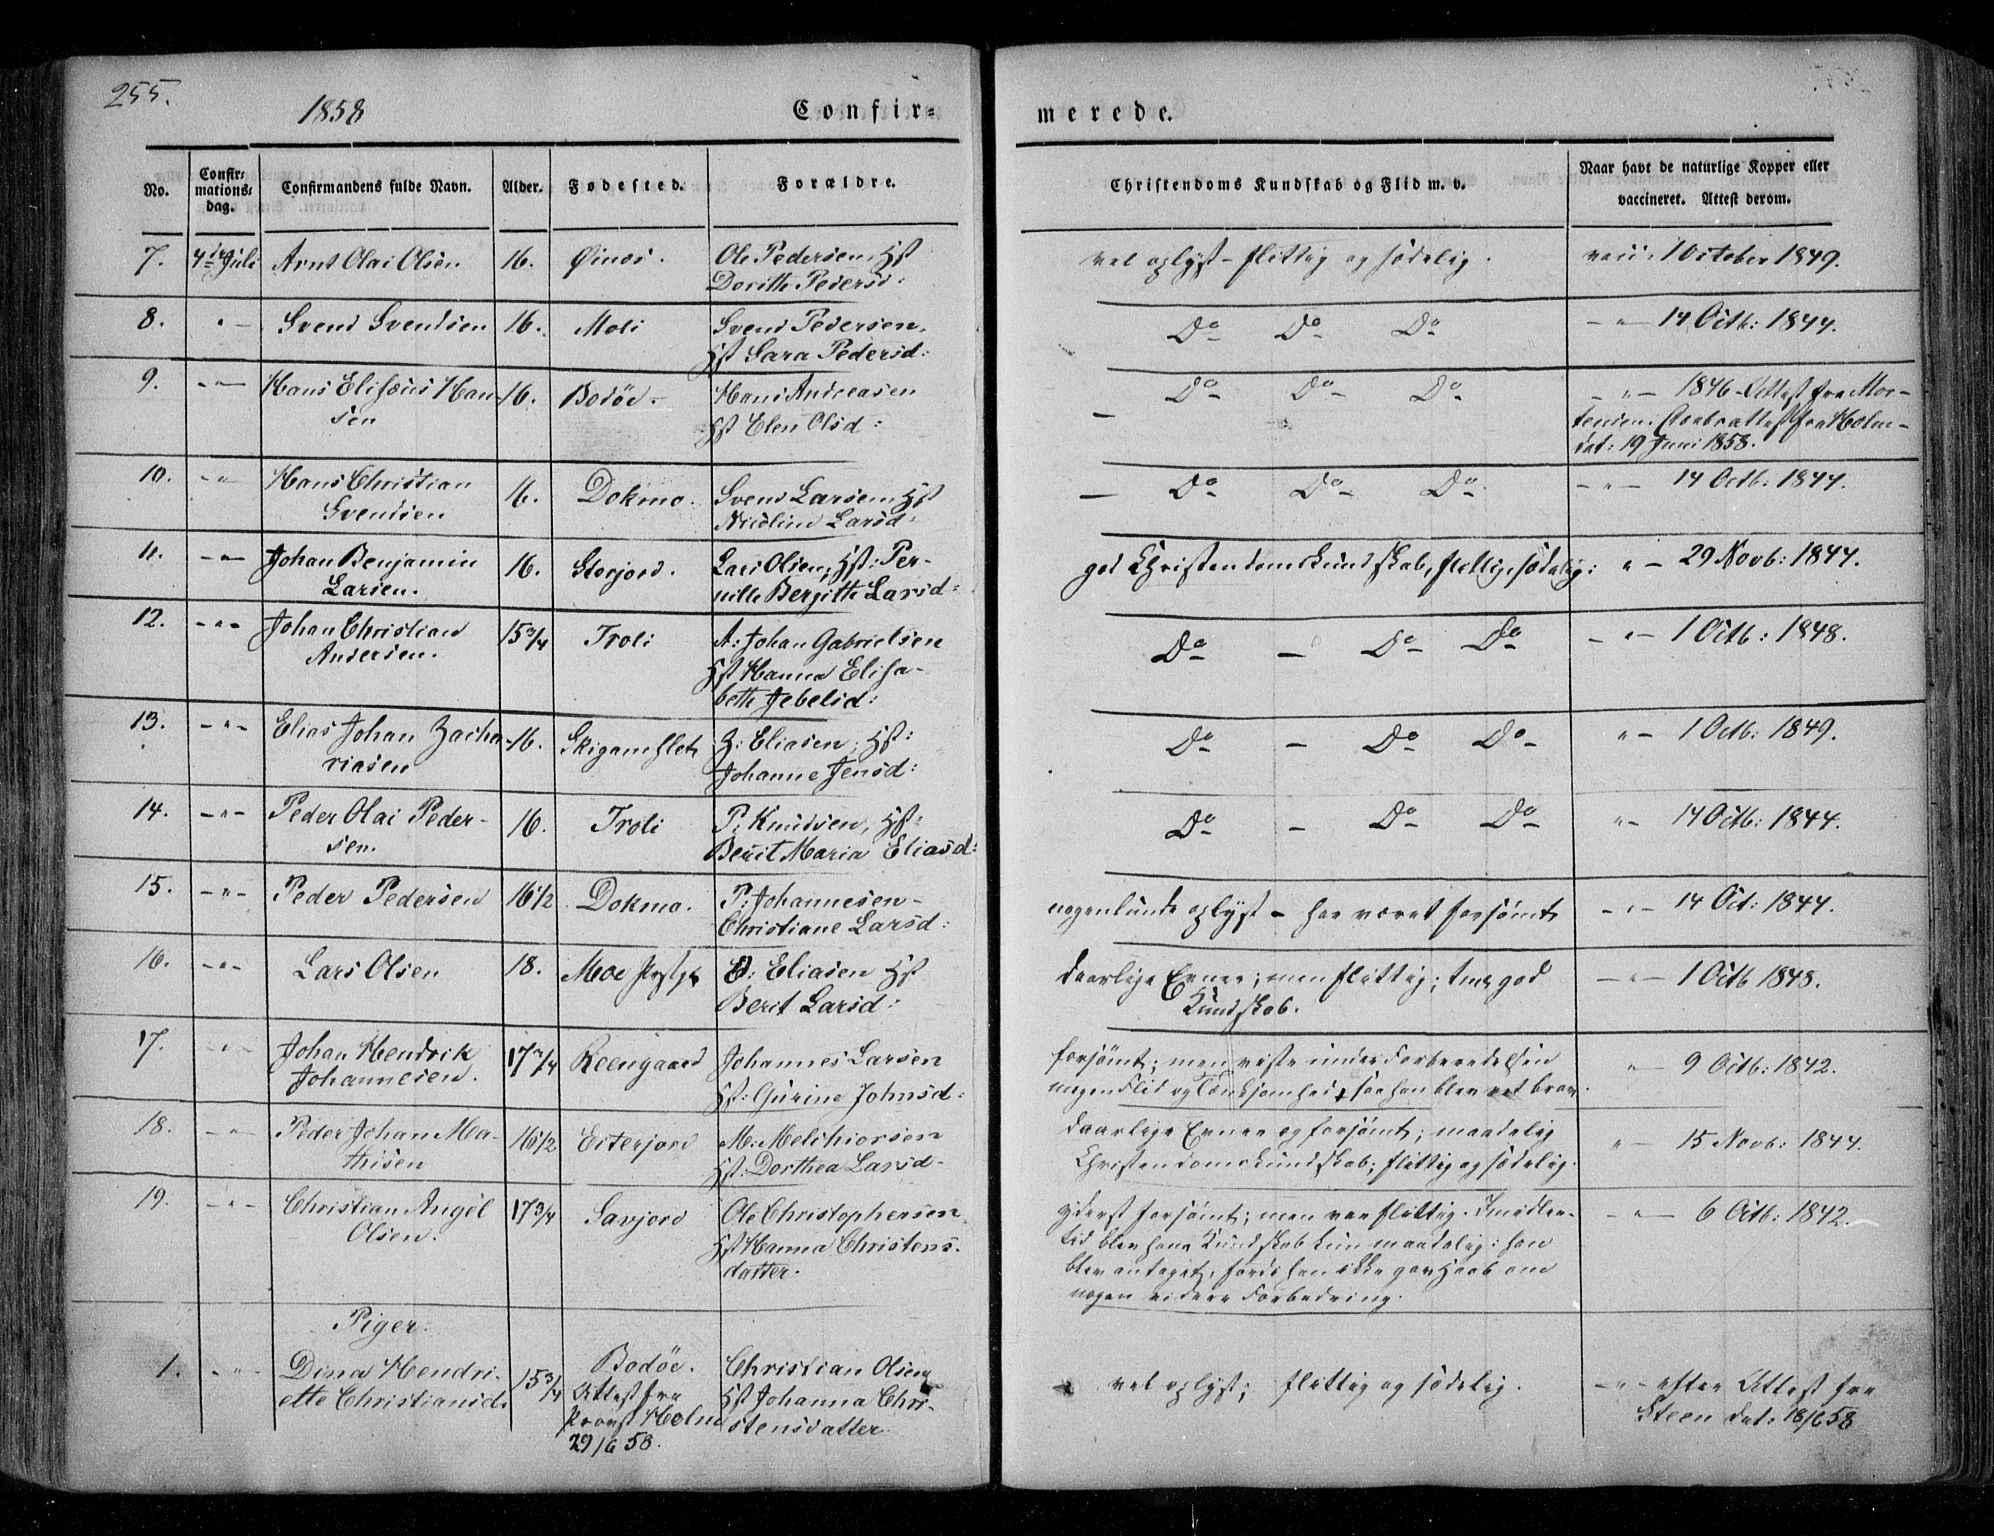 255.
1858
Confir=
merede.
No.
Confir-
mations-
dag.
Confirmandens fulde Navn.
Alder.
Fødested.
Forældre.
Christendoms Kundskab og Flid m. v.
Naar havt de naturlige Kopper eller
vaccineret. Attest derom.
7. 4de Juli Arnt Olai Olsen 16. Øines. Ole Pedersen, Hst
Dorithe Pedersd:
vel oplyst - flittig og sædelig. vacc: 1 October 1849.
8. " Svend Svendsen 16. Moli Svend Pedersen,
Hst Sara Pedersd:
Do Do Do - " - 14 Octb: 1844.
9. - " - Hans Elisæus Han-
sen 16. Bodøe. Hans Andreasen
Hst Elen Olsd:
- Do Do Do - " - 1846 - Attest fra Mor-
tensen. fra Holm-
dat: 19 Juni 1858.
10. - " - Hans Christian
Svendsen 16. Dokmo. Svend Larsen, Hst
Nicoline Larsd:
- Do Do Do - " - 14 Octb. 1844.
11. - " - Johan Benjamin
Larsen. 16. Storjord. Lars Olsen, Hst: Per-
nille Bergitte Larsd:
god Christendomskundskab, flittig, sædelig: " - 29 Novb: 1844.
12. - " - Johan Christian
Andersen. 15 3/4 Troli A: Johan Gabrielsen
Hst Hanna Elisa-
beth Jebelsd:
Do - Do Do - " - 1 Octb: 1848.
13. - " - Elias Johan Zacha-
riasen 16. Skigamslet Z: Eliasen, Hst:
Johanne Jensd:
Do - Do Do " - 1 Octb: 1849.
14. - " - Peder Olai Peder-
sen. 16. Troli P: Knudsen, Hst:
Berit Maria Eliasd:
Do - Do Do " - 14 Octb: 1844.
15. - " - Peder Pedersen 16 1/2 Dokmo. P: Johannesen -
Christiane Larsd:
nogenlunde oplyst - har været forsømt - " - 14 Oct: 1844.
16. - " - Lars Olsen 18. Moe Prstgj O: Eliasen Hst
Berit Larsd:
daarlige Evner; men flittig; god
Kundskab. - " - 1 Octb 1848.
17. - " - Johan Hendrik
Johannesen. 17 3/4 Reengaard Johannes Larsen
Hst: Gurine Johnsd:
forsømt; men viste under Forberedelsen
megen Flid og Lærksomhed, saa han blev ret brav. " - 9 Octb: 1842.
18. - " - Peder Johan Ma-
thisen 16 1/2 Eiterjord M: Melchiorsen
Hst: Dorthea Larsd -
daarlige Evner og forsømt; maadelig
Christendomskundskab; flittig og sædelig. " - 15 Novb: 1844.
19. - " - Christian Angel
Olsen. 17 3/4 Savjord Ole Christophersen
Hst Hanna Christens-
datter.
yderst forsømt; men var flittig. Imidler-
tid blev hans Kundskab kun maadelig: han
blev antaget, fordi han ikke gav Haab om
nogen videre Forbedring. - " - 6 Octb: 1842.
Piger.
1. - " - Dina Hendri-
ette Christiansd. 15 3/4 Bodøe.
Attest fra
Provst Holm
29/6 58. Christian Olsen
Hst Johanna Chri-
stensdatter.
vel oplyst; flittig og sædelig. - " - efter Attest fra
Steen dat: 18/6 58